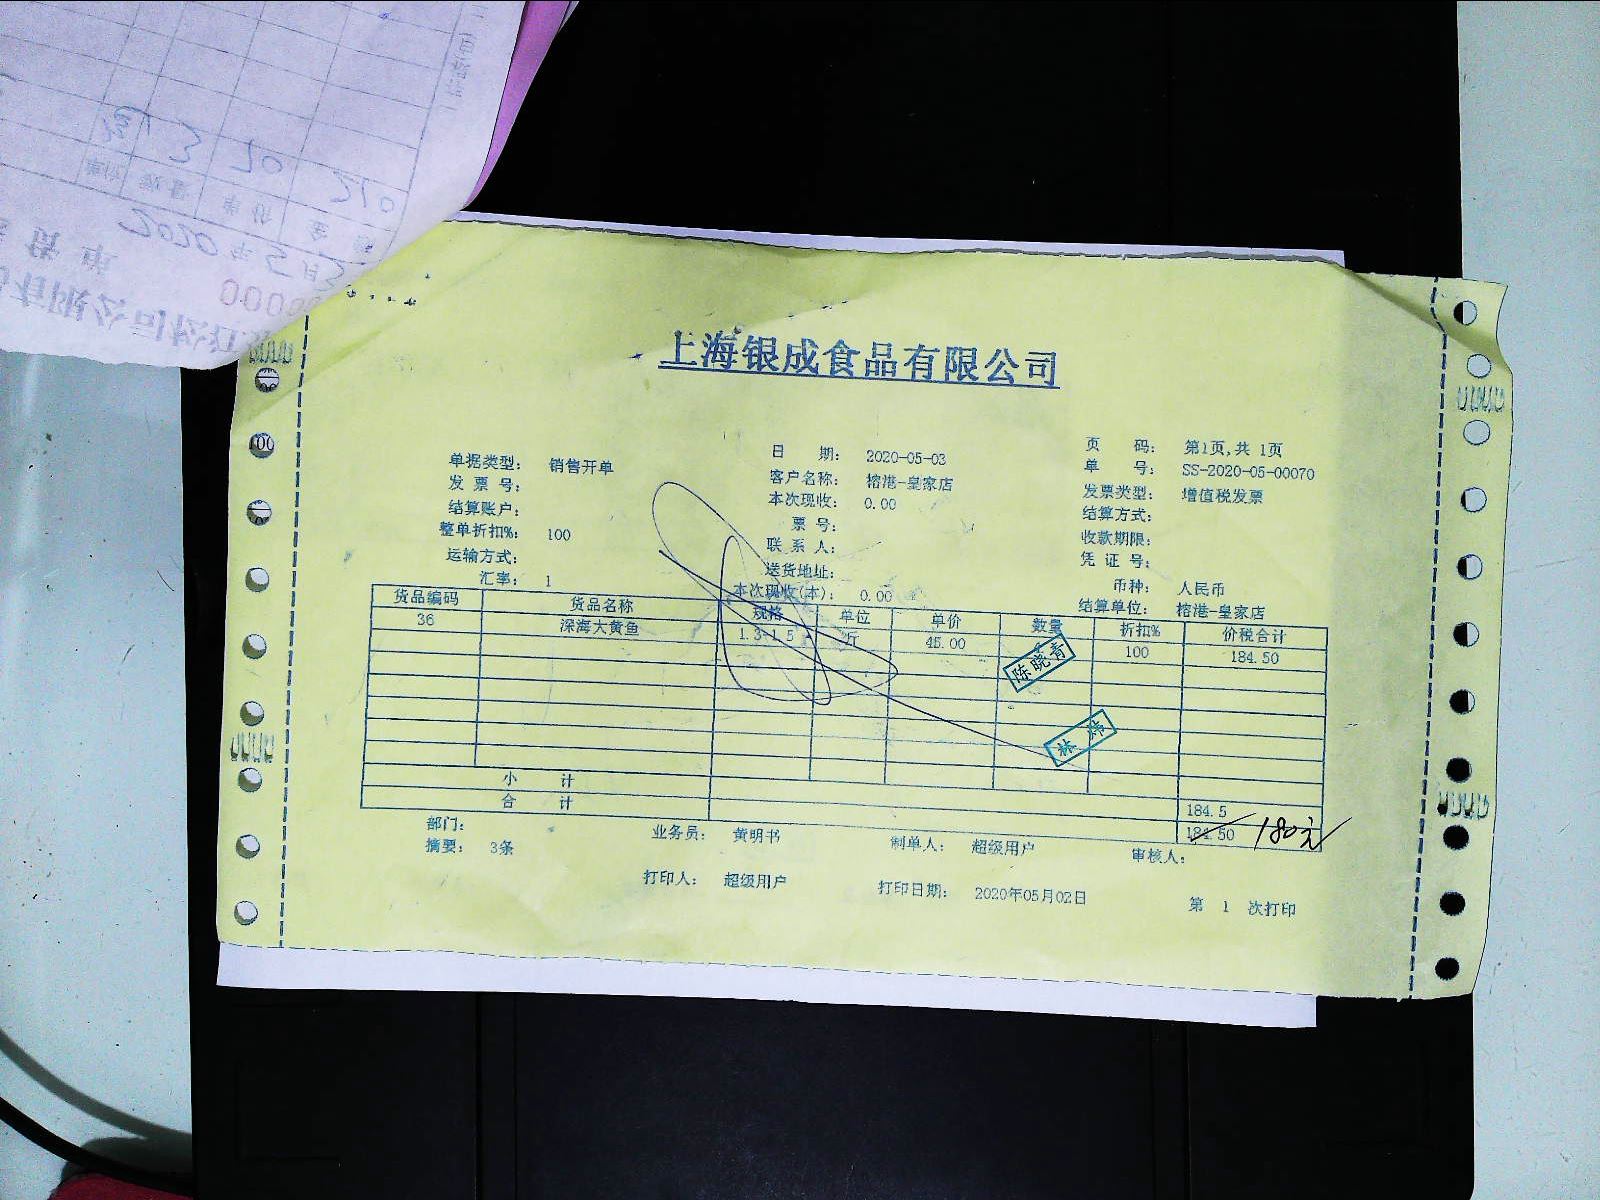 上海银成食品有限公司
单据类型: 销售开单 日 期: 2020-05-03 页 码: 第1页,共 1页
发 票 号: 客户名称: 榕港-皇家店 单 号: SS-2020-05-00070
结算账户: 本次现收: 0.00 发票类型: 增值税发票
整单折扣%: 100 票 号: 结算方式:
运输方式: 联 系 人: 收款期限:
汇率: 1 送货地址: 凭 证 号:
本次现收(本): 0.00 币种: 人民币
结算单位: 榕港-皇家店
货品编码 货品名称 规格 单位 单价 数量 折扣% 价税合计
36 深海大黄鱼 1.3-1.5 斤 45.00 100 184.50
陈晓青
林炜
小 计 184.5
合 计 184.50 180元
部门: 业务员: 黄明书 制单人: 超级用户 审核人:
摘要: 3条
打印人: 超级用户 打印日期: 2020年05月02日 第 1 次打印